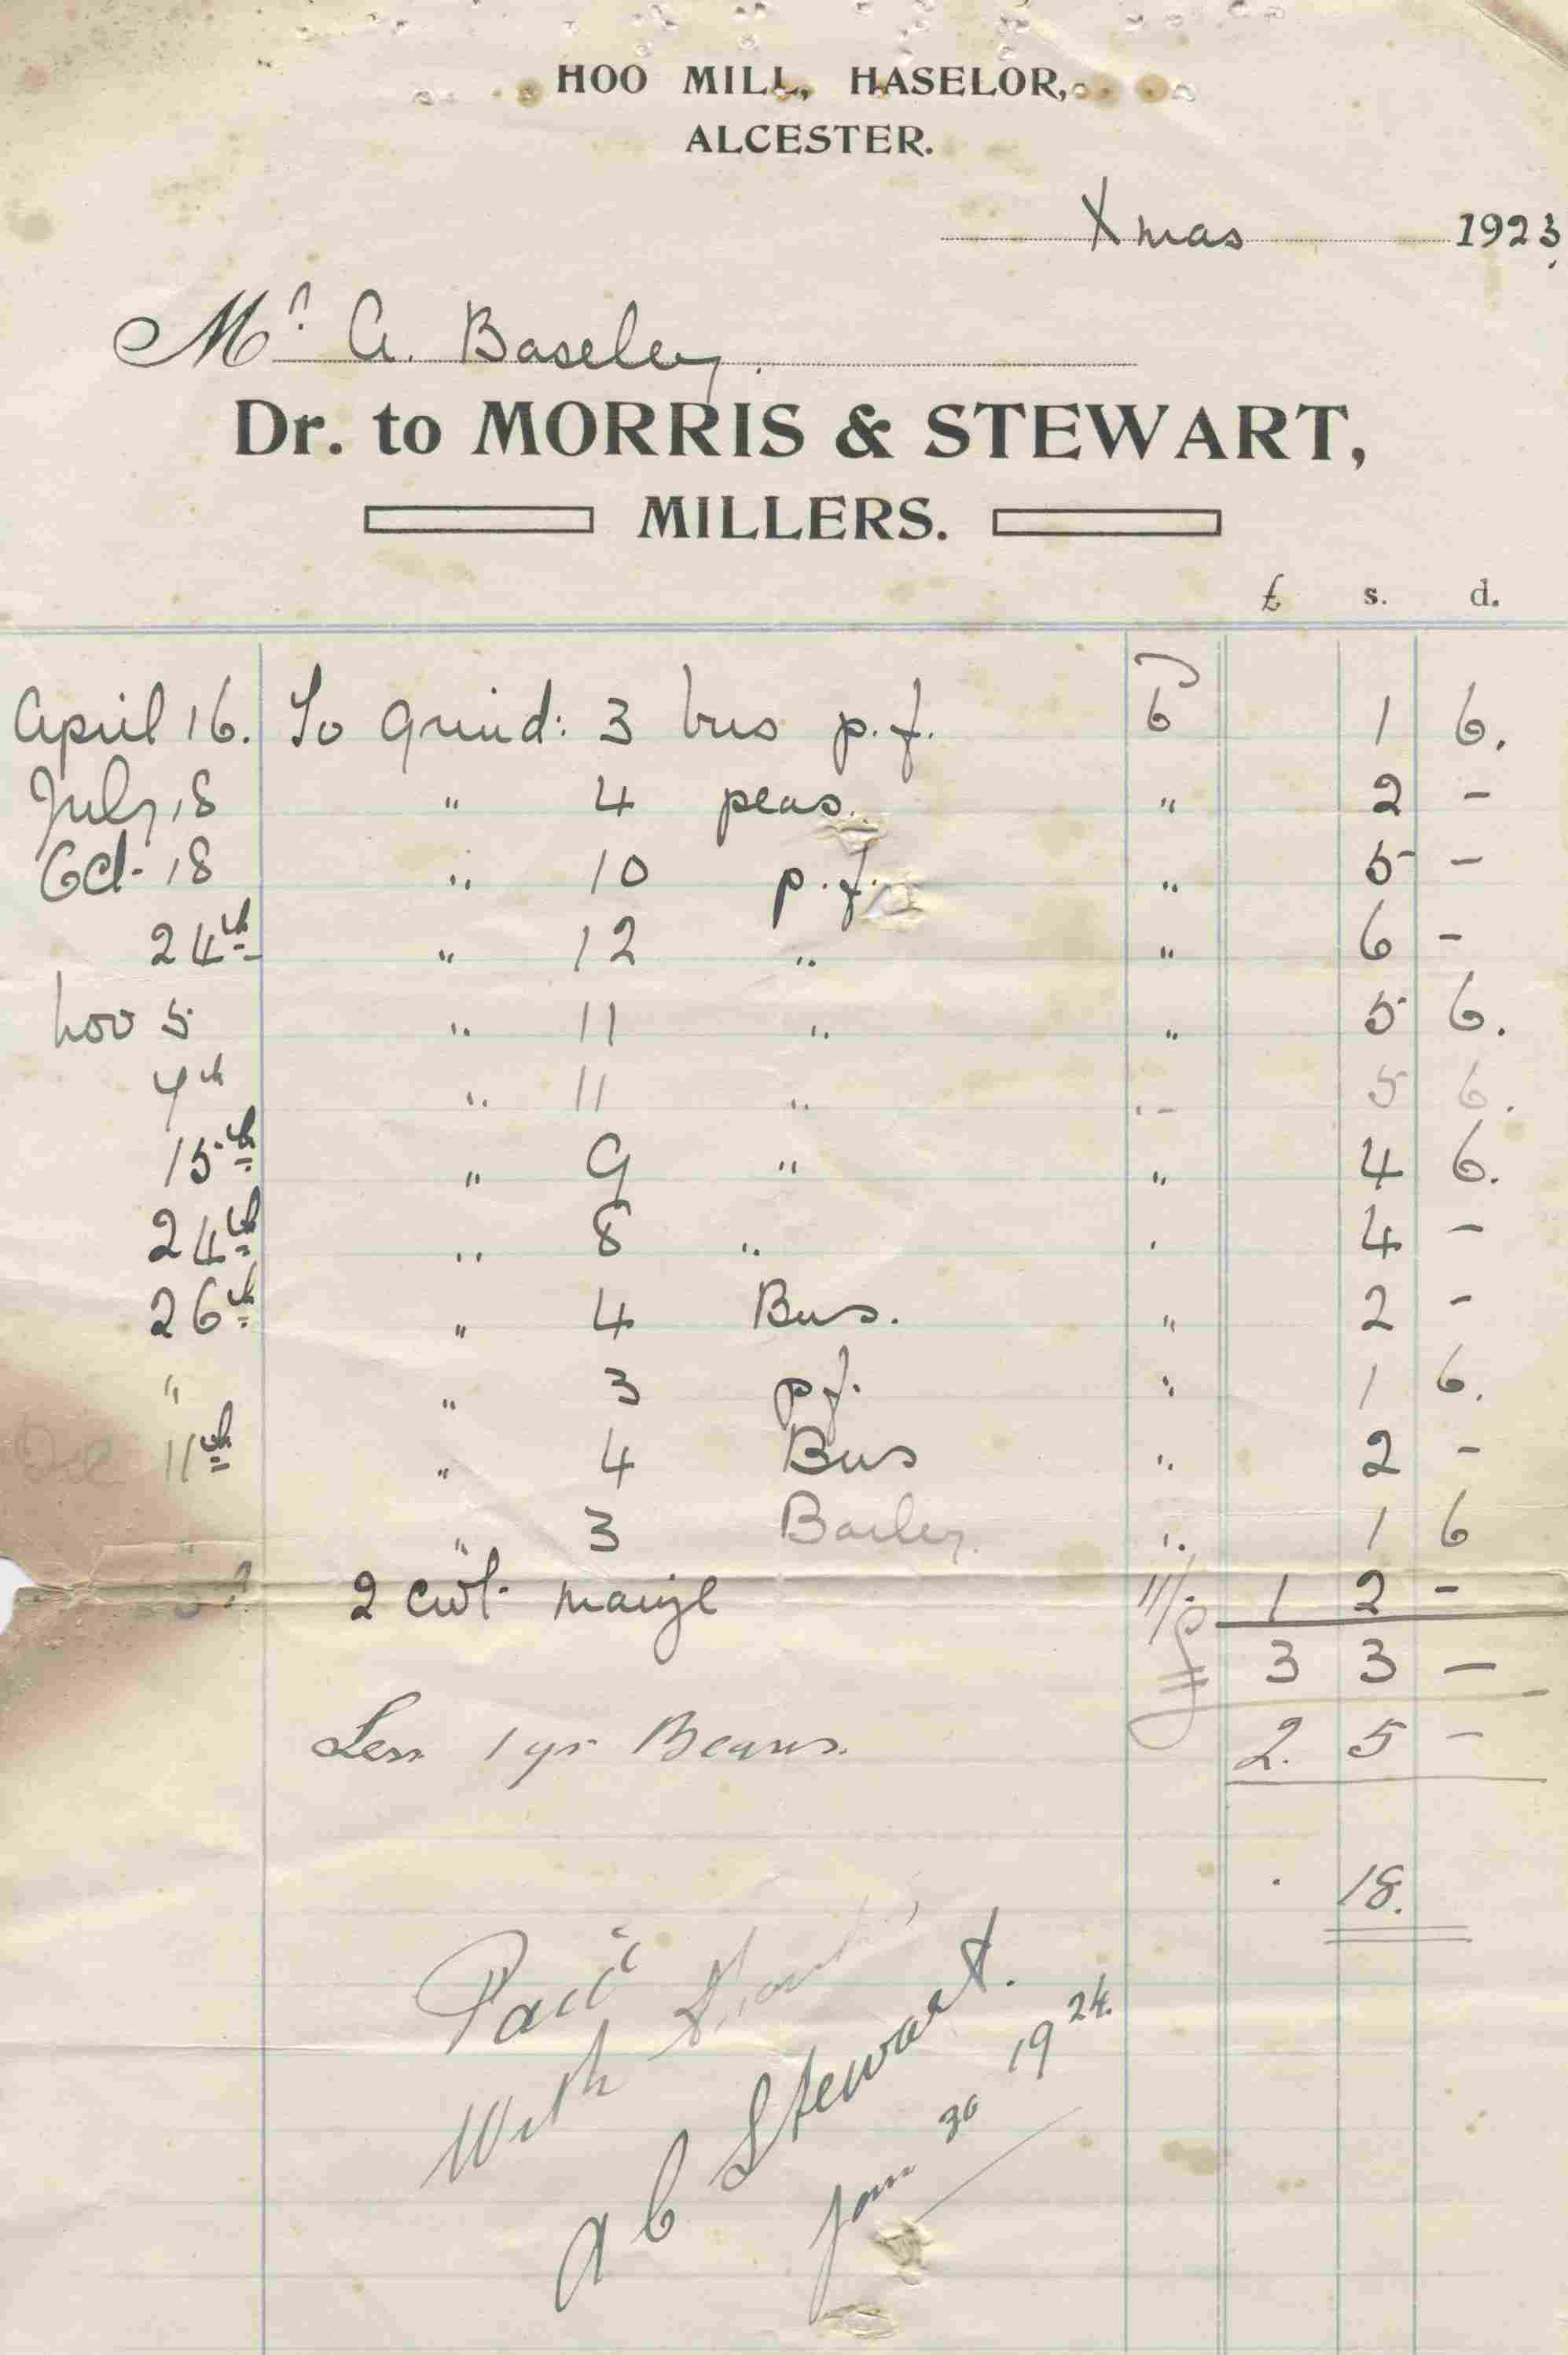 HOO MILL, HASELOR,
ALCESTER.
Xmas 1923
Mr. A. Baseley.
Dr. to MORRIS & STEWART,
MILLERS.
£ s. d.
April 16. To Grind: 3 bus p.f. 6 1 6.
July 18 " 4 peas. " 2 -
Oct. 18 " 10 p.f. " 5 -
24th " 12 " " 6 -
Nov 5 " 11 " " 5 6.
7th " 11 " " 5 6.
15th " 9 " " 4 6.
24th " 8 " " 4 -
26th " 4 Bus. " 2 -
" " 3 p.f. " 1 6.
Dec 11th " 4 Bus " 2 -
" " 3 Barley. " 1 6
2 cwt. maize 11/- 1 2 -
£ 3 3 -
Less 1 qr Beans. 2. 5 -
18.
Paid
With Thanks
A C Stewart.
Jan 30 1924.